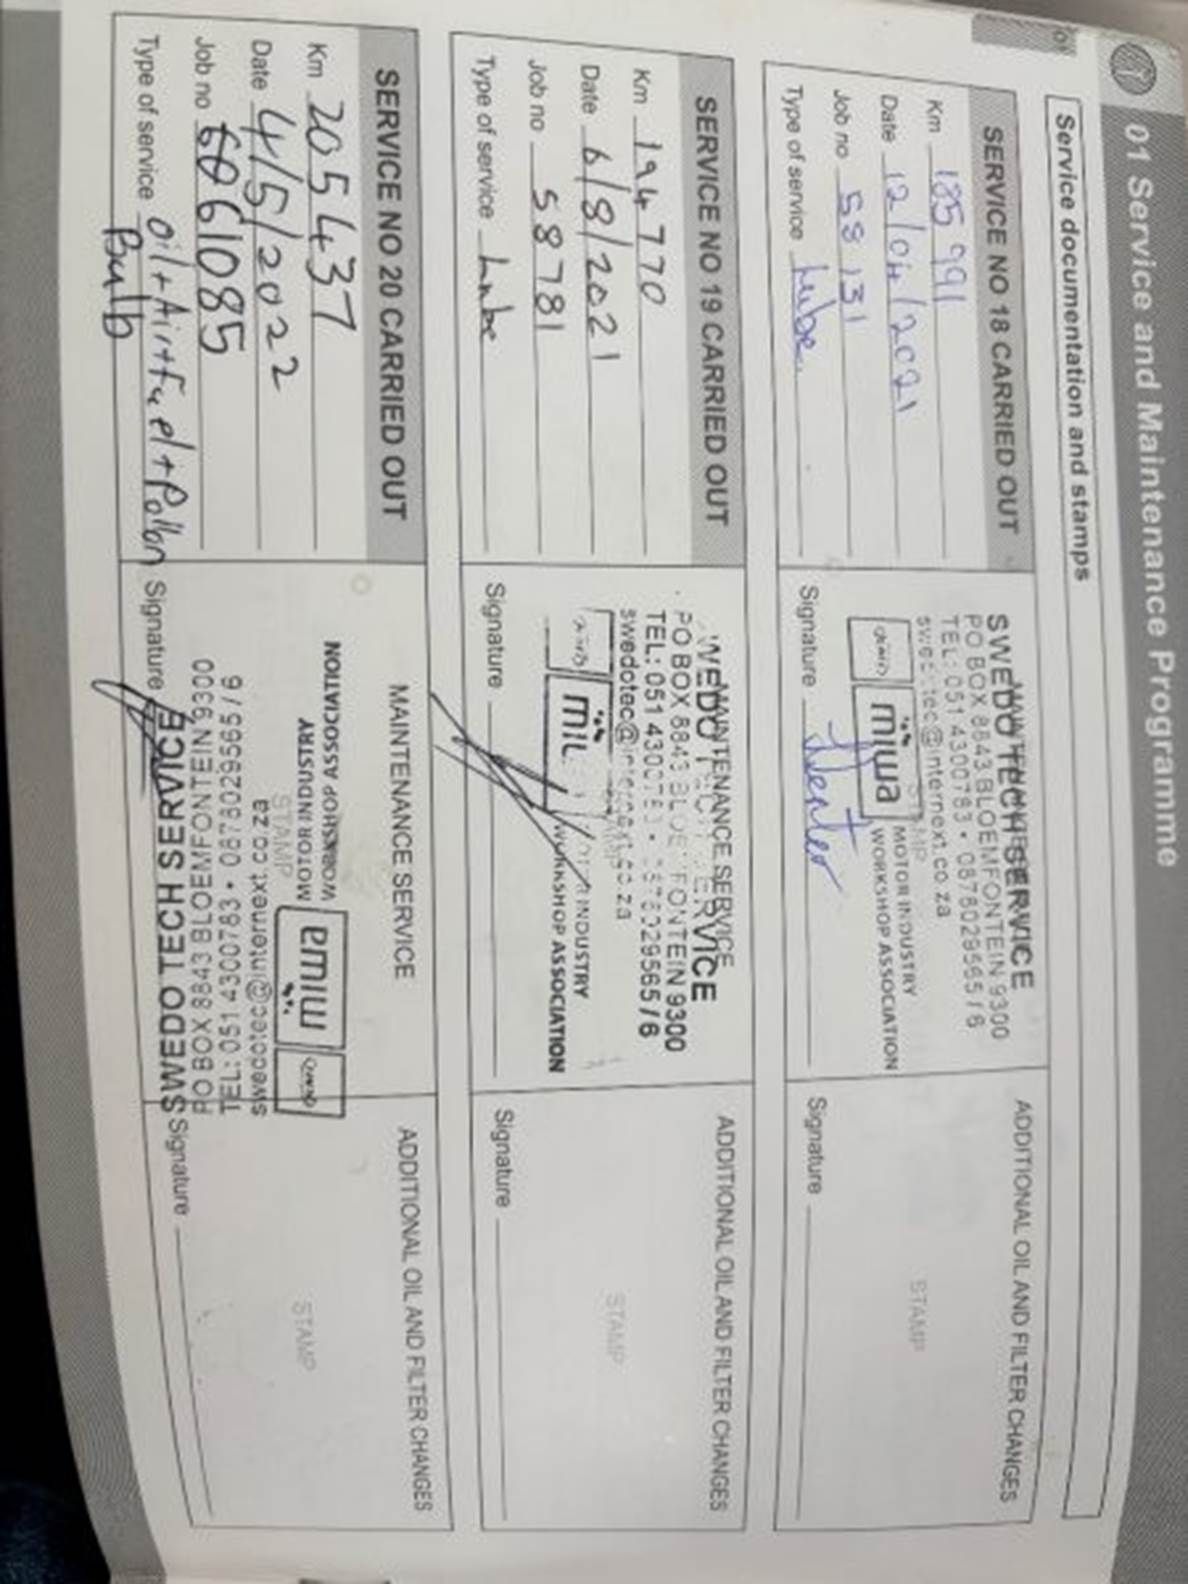 01 Service and Maintenance Programme
Service documentation and stamps
SERVICE NO 18 CARRIED OUT
Km 185 991
Date 12/04/2021
Job no 58131
Type of service Lube
SWEDO TECH SERVICE
PO BOX 8843 BLOEMFONTEIN 9300
TEL: 051 4300783 • 0878029565 / 6
swedotec@internext.co.za
miwa
MOTOR INDUSTRY
WORKSHOP ASSOCIATION
STAMP
Signature
ADDITIONAL OIL AND FILTER CHANGES
STAMP
Signature
SERVICE NO 19 CARRIED OUT
Km 194770
Date 6/8/2021
Job no 58781
Type of service Lube
MAINTENANCE SERVICE
PO BOX 8843 BLOEMFONTEIN 9300
TEL: 051 4300783 • 0878029565 / 6
swedotec@internext.co.za
INDUSTRY
WORKSHOP ASSOCIATION
Signature
ADDITIONAL OIL AND FILTER CHANGES
STAMP
Signature
SERVICE NO 20 CARRIED OUT
Km 205437
Date 4/5/2022
Job no 6061085
Type of service Oil+Air+Fuel+Pollen
Bulb
MAINTENANCE SERVICE
miwa
MOTOR INDUSTRY
WORKSHOP ASSOCIATION
STAMP
swedotec@internext.co.za
TEL: 051 4300783 • 0878029565 / 6
PO BOX 8843 BLOEMFONTEIN 9300
SWEDO TECH SERVICE
Signature
ADDITIONAL OIL AND FILTER CHANGES
STAMP
Signature